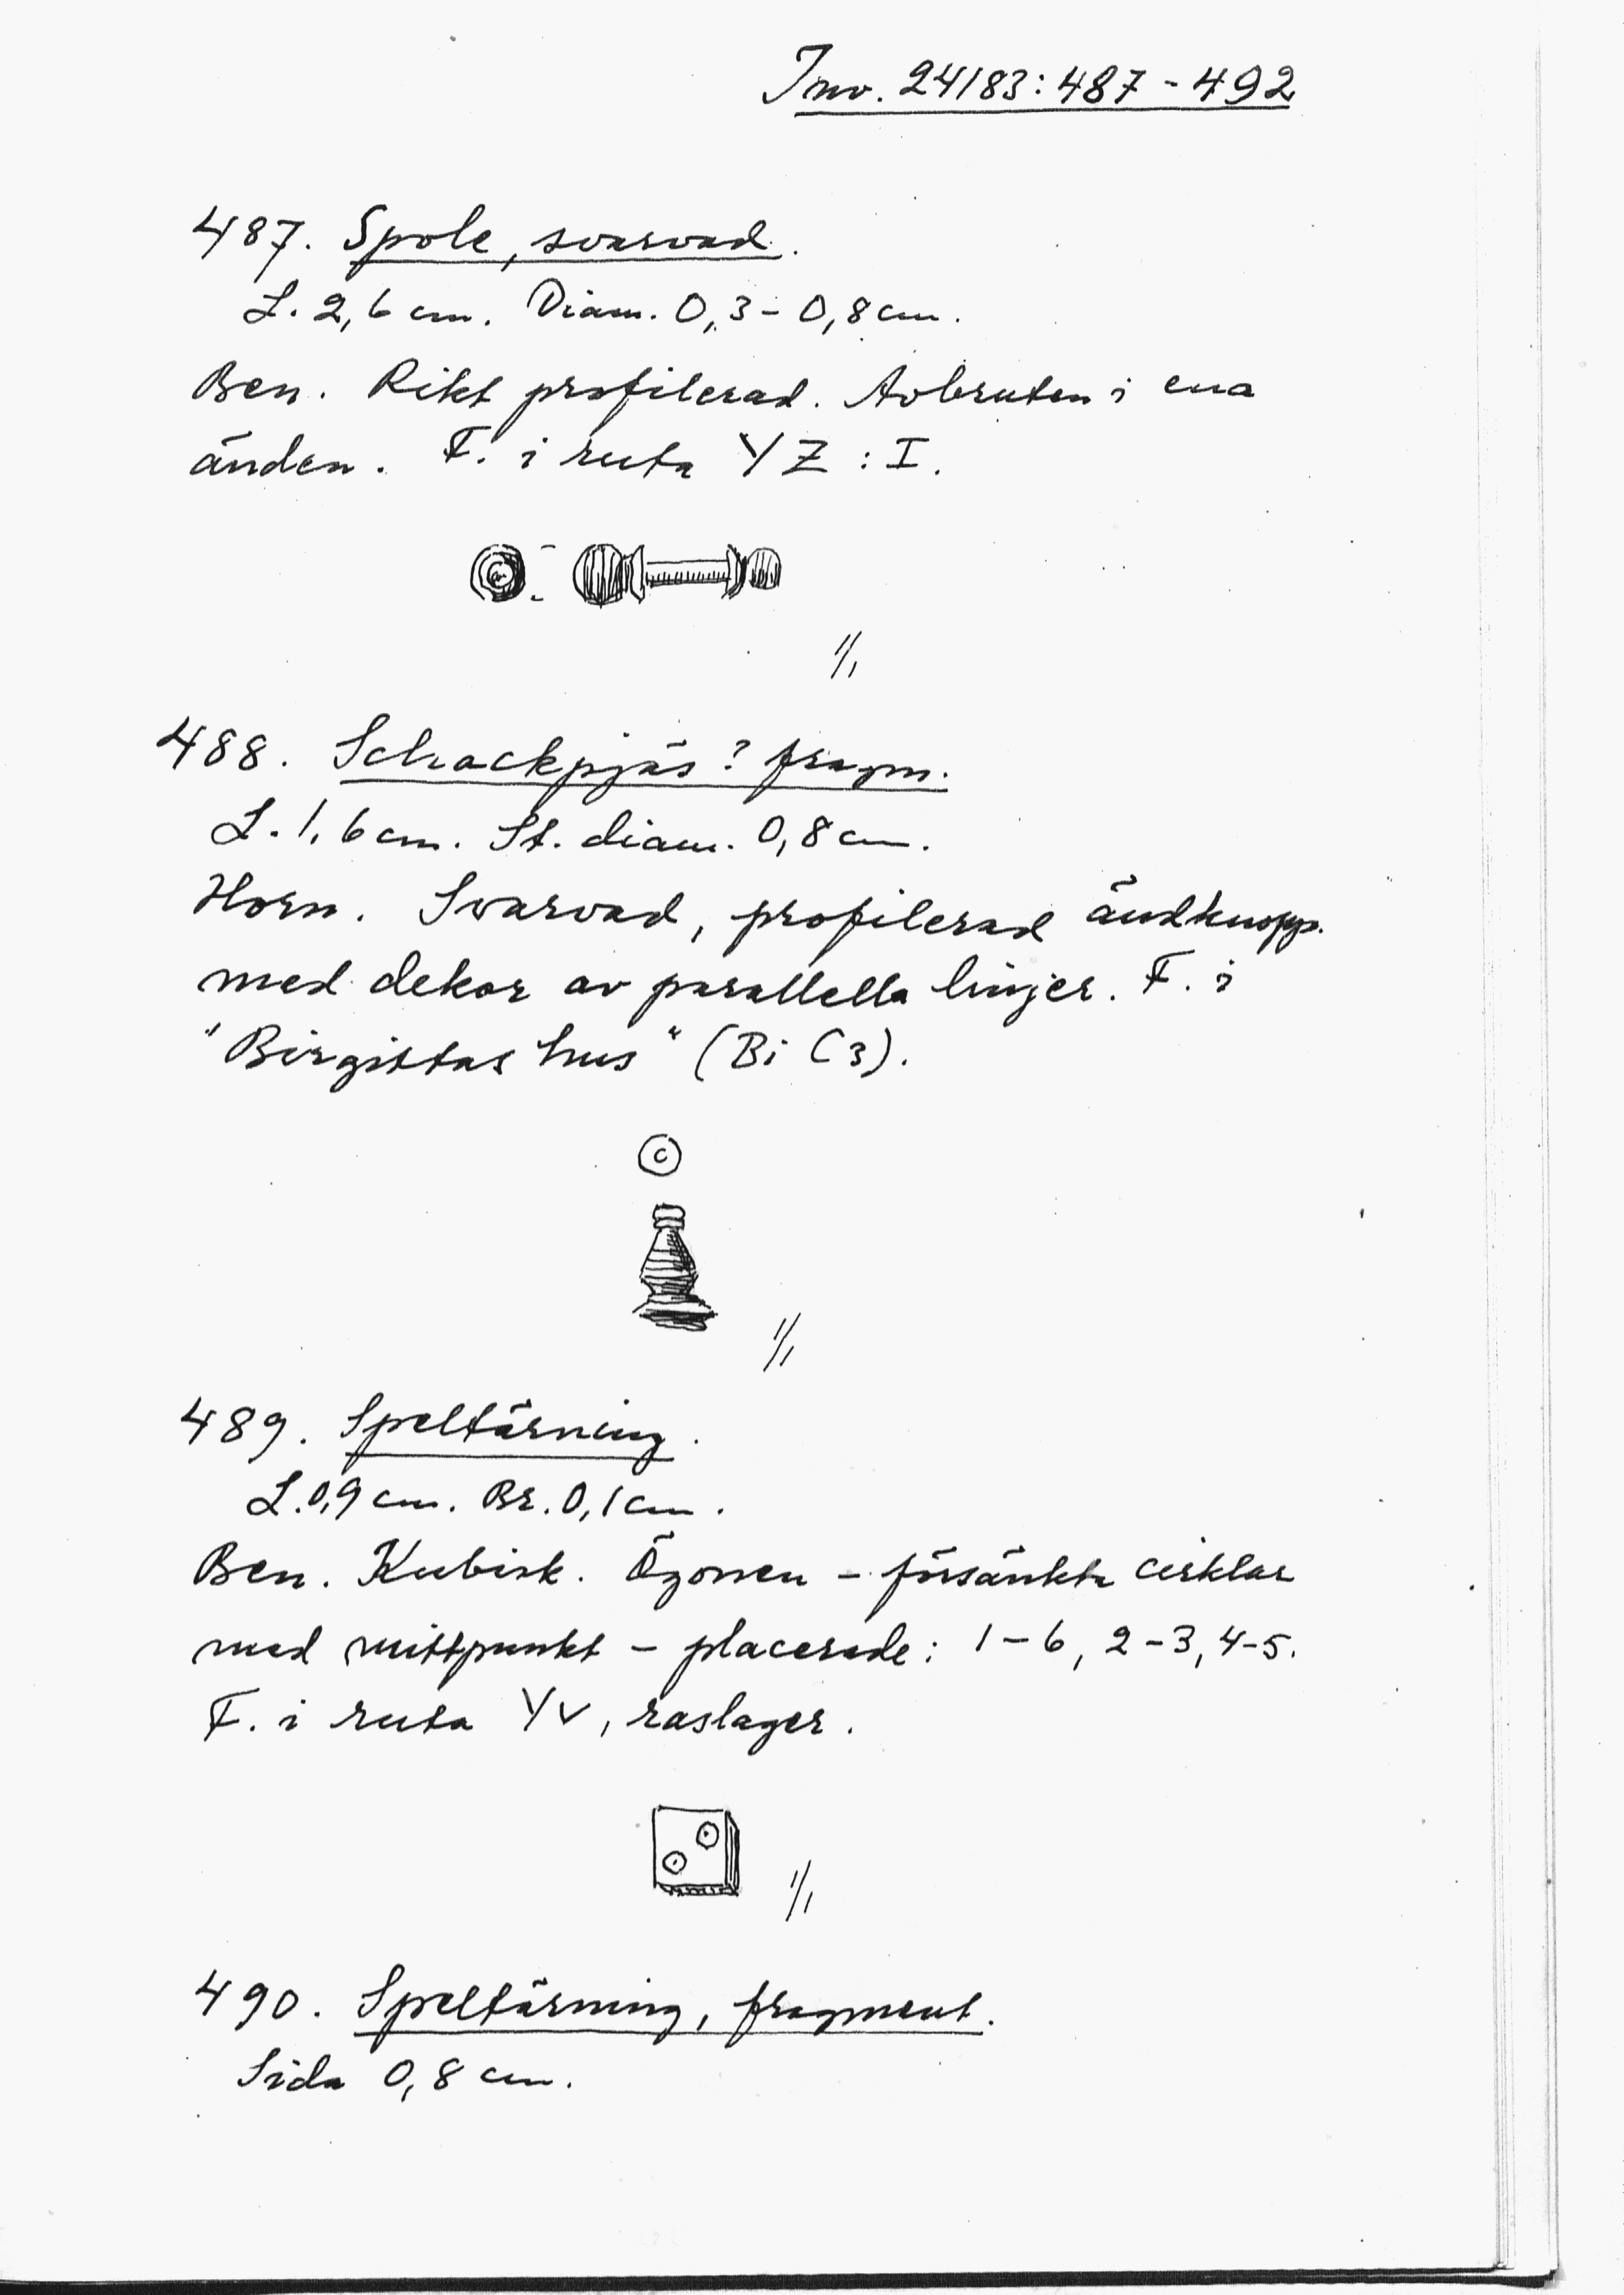 Inv. 24/83:487-492
487. Spole, svarvad.
L. 2,6 cm. Diam. 0,3-0,8 cm.
Ben. Rikt profilerad. Avbruten i ena
änden. F. i ruta YZ : I.
1/1
488. Schackpjäs? fragm.
L. 1,6 cm. St. diam. 0,8 cm.
Horn. Svarvad, profilerad ändknopp
med dekor av parallella linjer. F. i
"Birgittas hus" (Bi C3).
1/1
489. Speltärning.
L. 0,9 cm. Br. 0,1 cm.
Ben. Kubisk. Ögonen - försänkta cirklar
med mittpunkt - placerade: 1-6, 2-3, 4-5.
F. i ruta YV, raslager.
1/1
490. Speltärning, fragment.
Sida 0,8 cm.